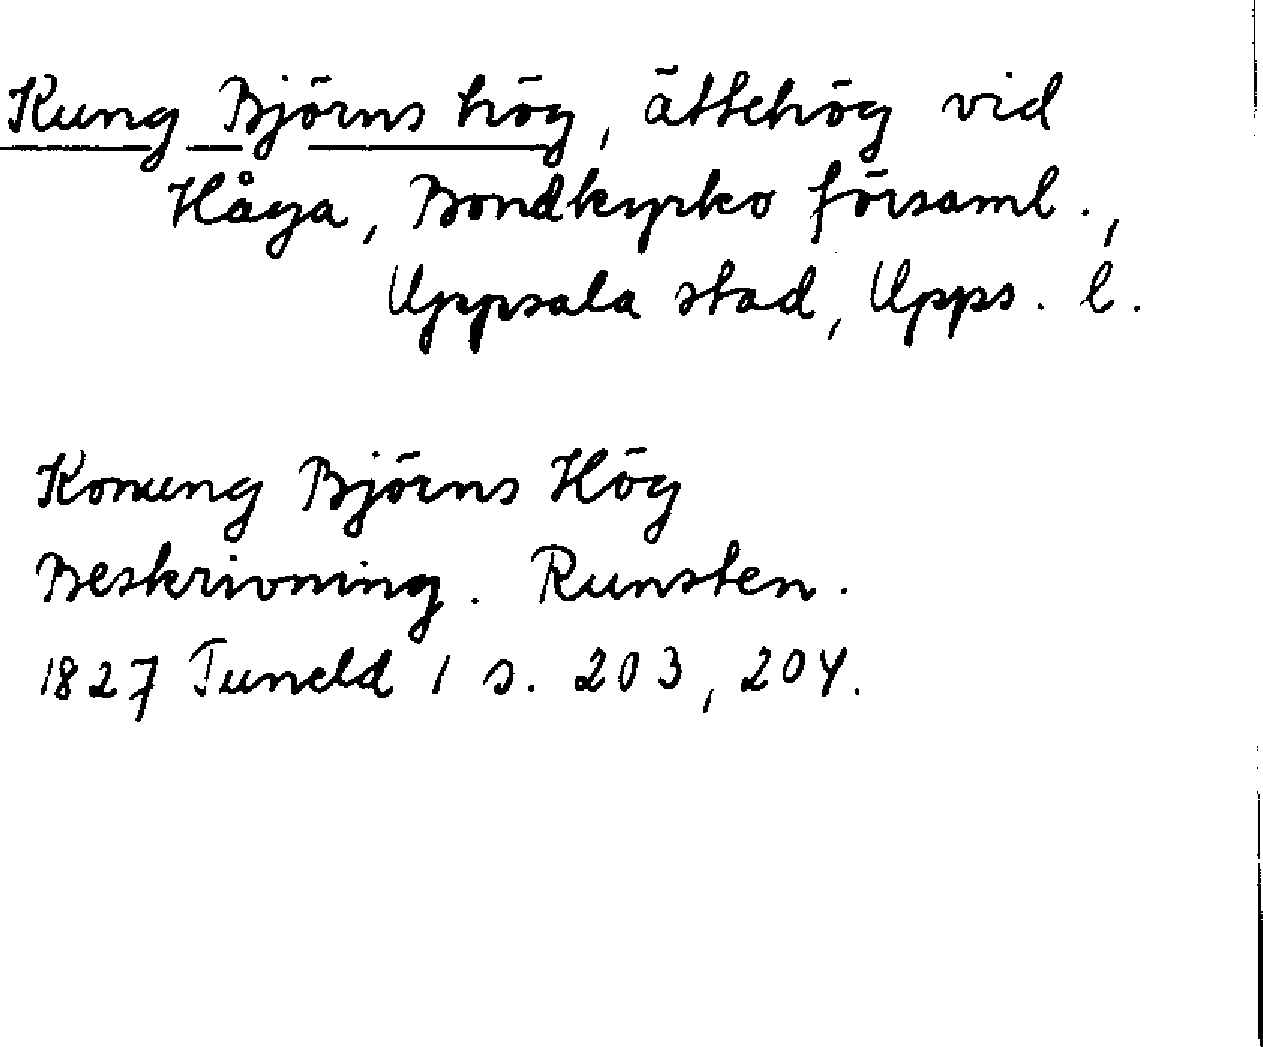 Kung Björns hög, ättehög vid
Håga, Bondkyrko församl.,
Uppsala stad, Upps. l.
Konung Björns Hög
Beskrivning. Runsten.
1827 Tuneld 1 s. 203, 204.